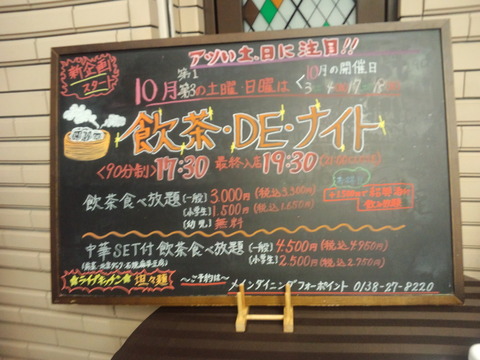 アツい土、日に注目!!
新企画
スタート
10月第1第3の土曜・日曜は
10月の開催日
3 4 17 18
飲茶・DE・ナイト
<90分制> 17:30 最終入店 19:30
飲茶食べ放題 (一般) 3,000円 (税込3,300円)
(小学生) 1,500円 (税込1,650円)
(幼児) 無料
飲み放題
中華SET付 飲茶食べ放題 (一般) 4,500円 (税込4,950円)
(小学生) 2,500円 (税込2,750円)
★ライブキッチン★ 担々麺
~ご予約は~
メインダイニングフォーポイント 0138-27-8220